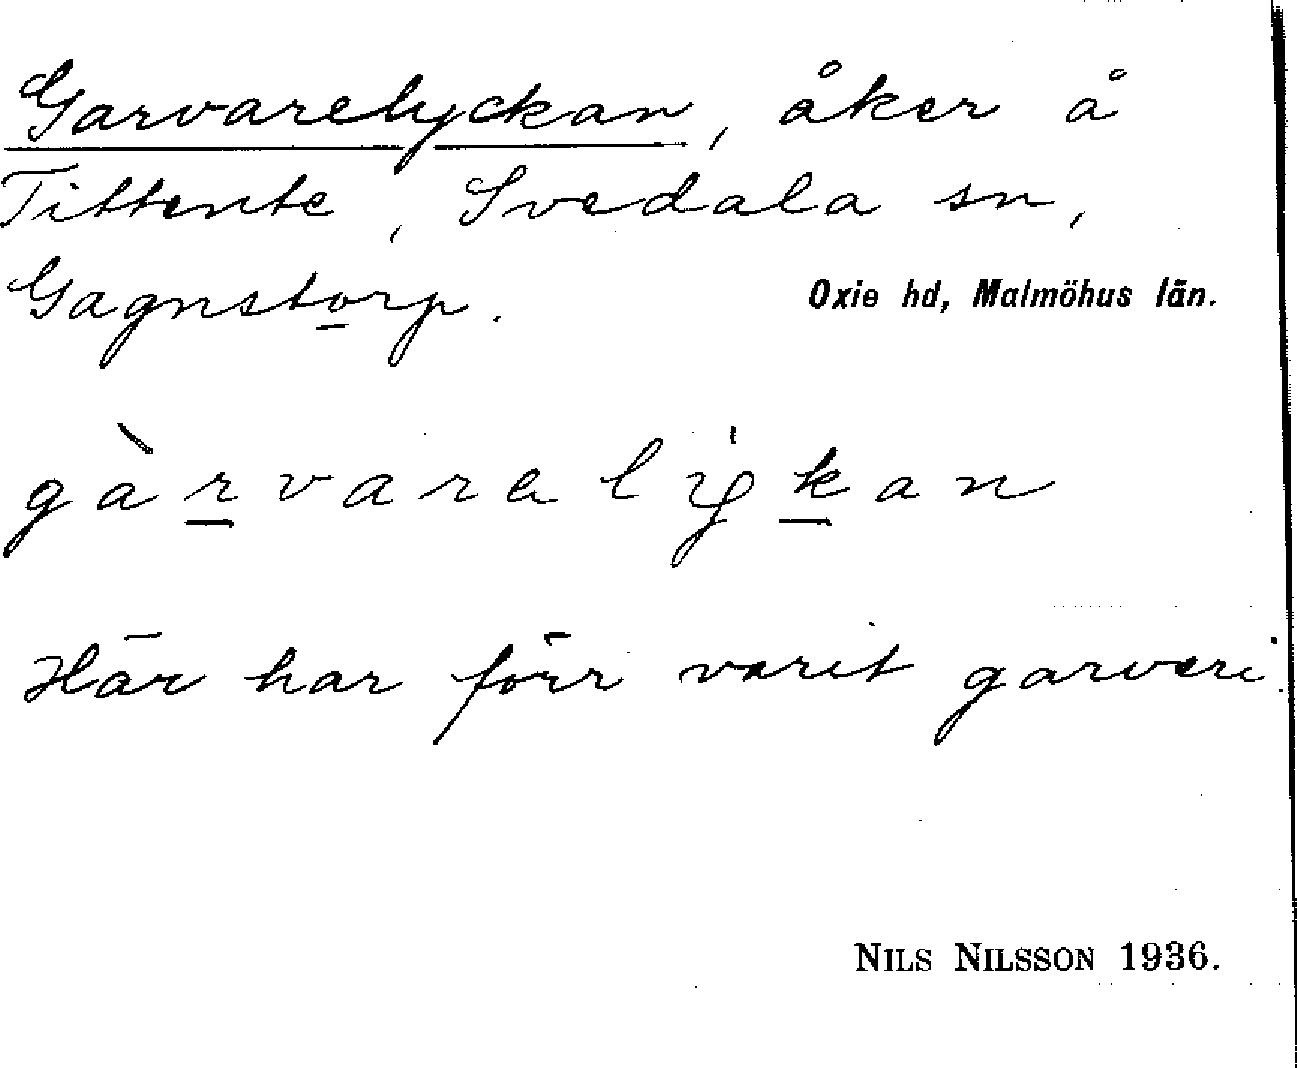 Garvarelyckan, åker å
Tittente, Svedala sn,
Gagnstorp.
Oxie hd, Malmöhus län.
gàrvaralykan
Här har förr varit garveri.
NILS NILSSON 1936.